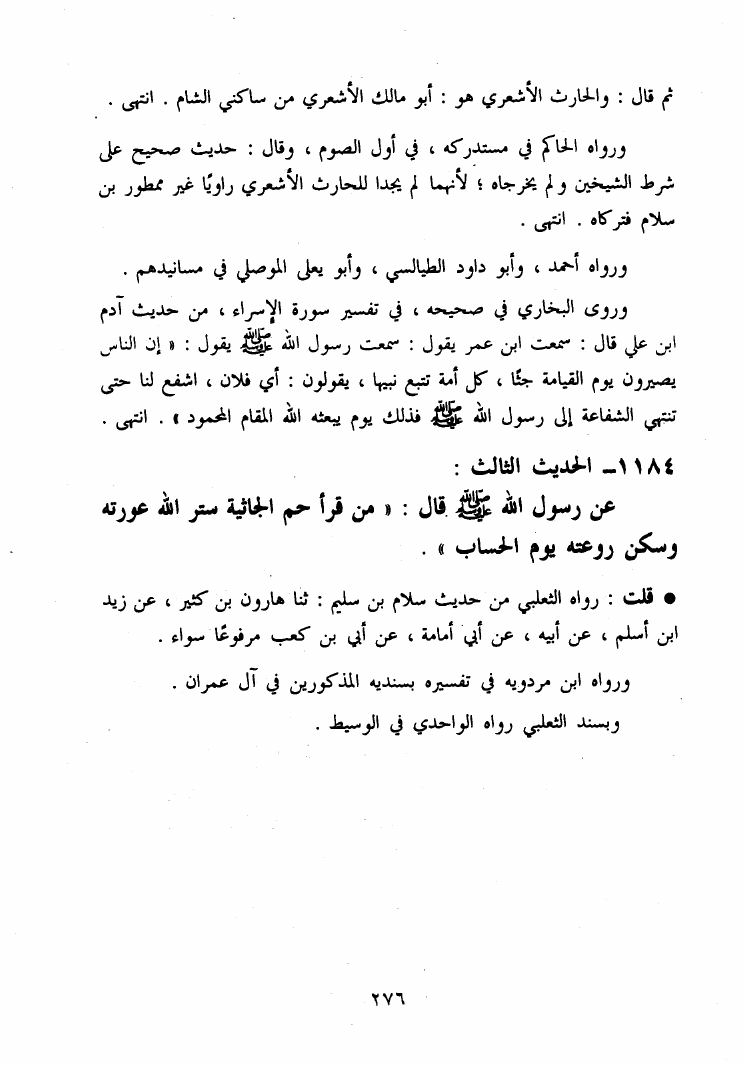 ثم قال : والحارث الأشعري هو : أبو مالك الأشعري من ساكني الشام . انتهى .
ورواه الحاكم في مستدركه ، في أول الصوم ، وقال : حديث صحيح على
شرط الشيخين ولم يخرجاه ؛ لأنهما لم يجدا للحارث الأشعري راويًا غير ممطور بن
سلام فتركاه . انتهى .
ورواه أحمد ، وأبو داود الطيالسي ، وأبو يعلى الموصلي في مسانيدهم .
وروى البخاري في صحيحه ، في تفسير سورة الإسراء ، من حديث آدم
ابن علي قال : سمعت ابن عمر يقول : سمعت رسول الله ﷺ يقول : « إن الناس
يصيرون يوم القيامة جثًا ، كل أمة تتبع نبيها ، يقولون : أي فلان ، اشفع لنا حتى
تنتهي الشفاعة إلى رسول الله ﷺ فذلك يوم يبعثه الله المقام المحمود » . انتهى .
١١٨٤ـ الحديث الثالث :
عن رسول الله ﷺ قال : « من قرأ حم الجاثية ستر الله عورته
وسكن روعته يوم الحساب » .
● قلت : رواه الثعلبي من حديث سلام بن سليم : ثنا هارون بن كثير ، عن زيد
ابن أسلم ، عن أبيه ، عن أبي أمامة ، عن أبي بن كعب مرفوعًا سواء .
ورواه ابن مردويه في تفسيره بسنديه المذكورين في آل عمران .
وبسند الثعلبي رواه الواحدي في الوسيط .
٢٧٦